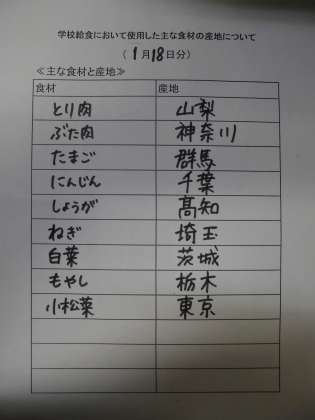 学校給食において使用した主な食材の産地について
（1月18日分）
≪主な食材と産地≫
食材 産地
とり肉 山梨
ぶた肉 神奈川
たまご 群馬
にんじん 千葉
しょうが 高知
ねぎ 埼玉
白菜 茨城
もやし 栃木
小松菜 東京